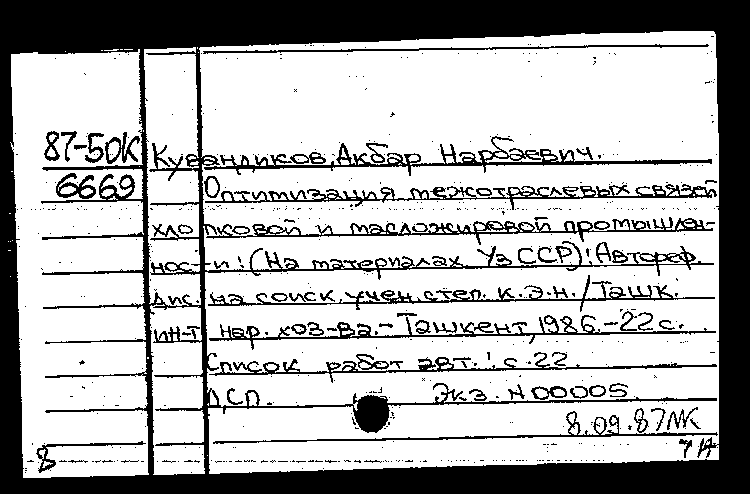 87-50К Кувандиков, Акбар Нарбаевич.
6669 Оптимизация межотраслевых связей
хлопковой и масложировой промышлен-
ности: (На материалах УзССР): Автореф.
дис. на соиск. учен. степ. к.э.н. / Ташк.
ин-т нар. хоз-ва. - Ташкент, 1986. - 22 с.
Список работ авт.: с. 22.
ДСП. Экз. N 00005.
8.09.87
8